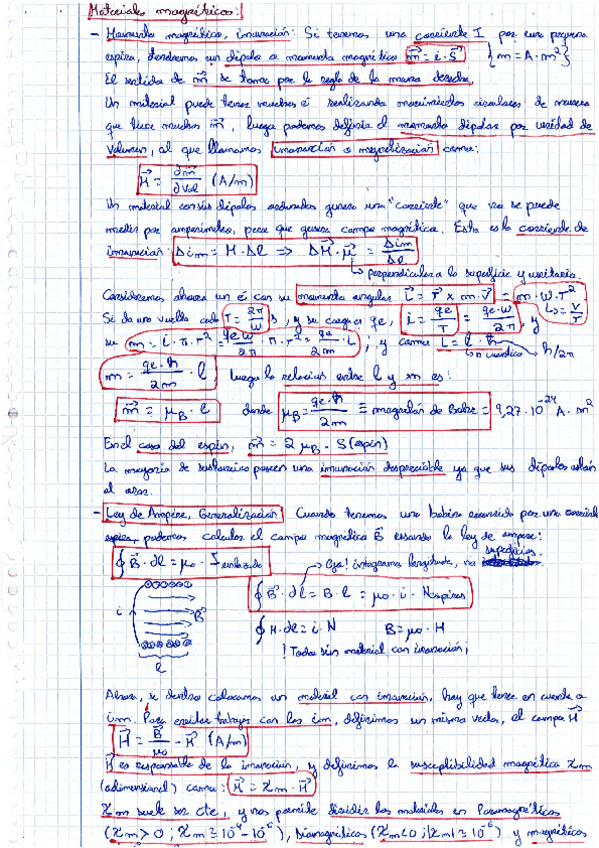 Materiales magnéticos:
- Momento magnético, imanación: Si tenemos una corriente I por una pequeña
espira, tendremos un dipolo o momento magnético m⃗ = i · S⃗ {m = A · m²}
El sentido de m⃗ se toma por la regla de la mano derecha.
Un material puede tener muchos e⁻ realizando movimientos circulares de manera
que tiene muchos m⃗, luego podemos definir el momento dipolar por unidad de
volumen, al que llamamos imanación o magnetización como:
M⃗ = ∂m⃗/∂Vol (A/m)
Un material con sus dipolos ordenados genera una "corriente" que no se puede
medir por amperímetro, pero que genera campo magnético. Esta es la corriente de
imanación: Δim = M · Δl ⇒ ΔM⃗ · μ⃗ = Δim/Δl
↳ perpendicular a la superficie y unitario.
Consideremos ahora un e⁻ con su momento angular L⃗ = r⃗ x m · v⃗ = m · w · r²
Si da una vuelta cada T = 2π/w s, y su carga es qe, i = qe/T = qe·w/2π, y
↳ = v/r
su m = i · π · r² = qe w/2π · π · r² = qe/2m · L; y como L = l · ħ
↳ nº cuántico → h/2π
m = qe·ħ/2m · l luego la relación entre l y m es:
m⃗ = μB · l donde μB = qe·ħ/2m ≡ magnetón de Bohr = 9,27 · 10⁻²⁴ A · m²
En el caso del espín, m⃗ = 2 μB · S (espín)
La mayoría de sustancias poseen una imanación despreciable ya que sus dipolos están
al azar.
- Ley de Ampere, Generalización: Cuando tenemos una bobina recorrida por una corriente
podemos calcular el campo magnético B⃗ usando la ley de ampere:
∮ B⃗ · dl = μ₀ · I enlazada → Ojo! integramos longitudes, no superficies.
∮ B⃗ · dl = B · l = μ₀ · i · Nespiras
i B⃗ ∮ H · dl = i · N B = μ₀ · H
l ! Todo sin material con imanación ¡
Ahora, si dentro colocamos un material con imanación, hay que tener en cuenta a
im. Para evitar trabajar con las im, definimos un mismo vector, el campo H⃗
H⃗ = B⃗/μ₀ - M⃗ (A/m)
H⃗ es responsable de la imanación, y definimos la susceptibilidad magnética χm
(adimensional) como: M⃗ = χm · H⃗
χm suele ser cte, y nos permite dividir los materiales en Paramagnéticos
(χm > 0; χm ≅ 10⁻⁴ - 10⁻⁶), Diamagnéticos (χm < 0; |χm| ≅ 10⁻⁶) y magnéticos